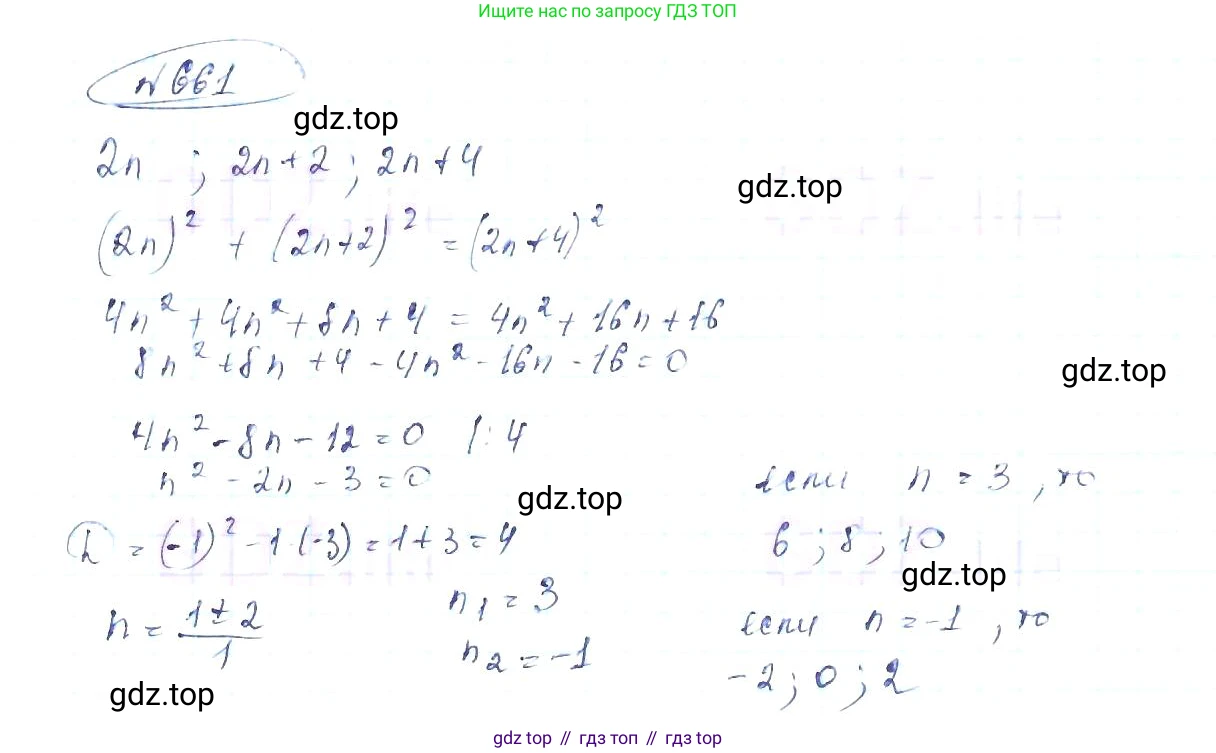 Ищите нас по запросу ГДЗ ТОП
№661
gdz.top
2n ; 2n+2 ; 2n+4
gdz.top
(2n)² + (2n+2)² = (2n+4)²
4n² + 4n² + 8n + 4 = 4n² + 16n + 16
8n² + 8n + 4 - 4n² - 16n - 16 = 0
gdz.top
4n² - 8n - 12 = 0 |: 4
n² - 2n - 3 = 0
если n = 3, то
gdz.top
= (-1)² - 1·(-3) = 1 + 3 = 4
6 ; 8 ; 10
gdz.top
n = (1 ± 2)/1
n₁ = 3
если n = -1, то
n₂ = -1
-2 ; 0 ; 2
gdz.top
gdz top // гдз топ // gdz.top